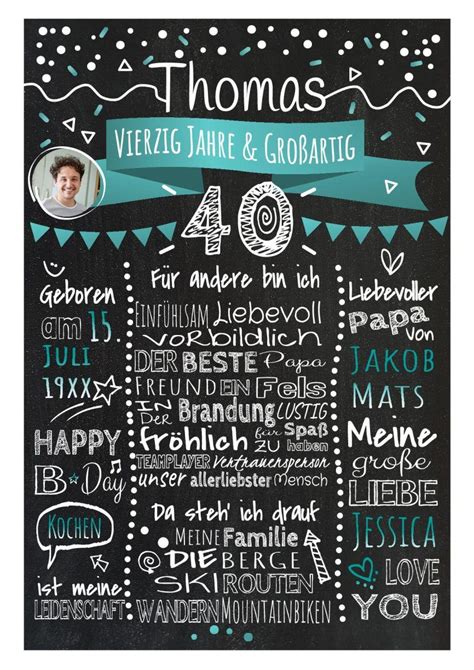 Thomas
Vierzig Jahre & Großartig
40
Geboren
am 15.
Juli
19XX
HAPPY
B-Day
Kochen
ist meine
LEIDENSCHAFT
Für andere bin ich
Einfühlsam Liebevoll
vorbildlich
DER BESTE Papa
Freund EIN Fels
IN DER Brandung LUSTIG
fröhlich für Spaß zu haben
TEAMPLAYER Vertrauensperson
unser allerliebster Mensch
Da steh' ich drauf
MEINE Familie
DIE BERGE
SKI ROUTEN
WANDERN Mountainbiken
Liebevoller
Papa
von
Jakob
Mats
Meine
große
LIEBE
Jessica
LOVE
YOU